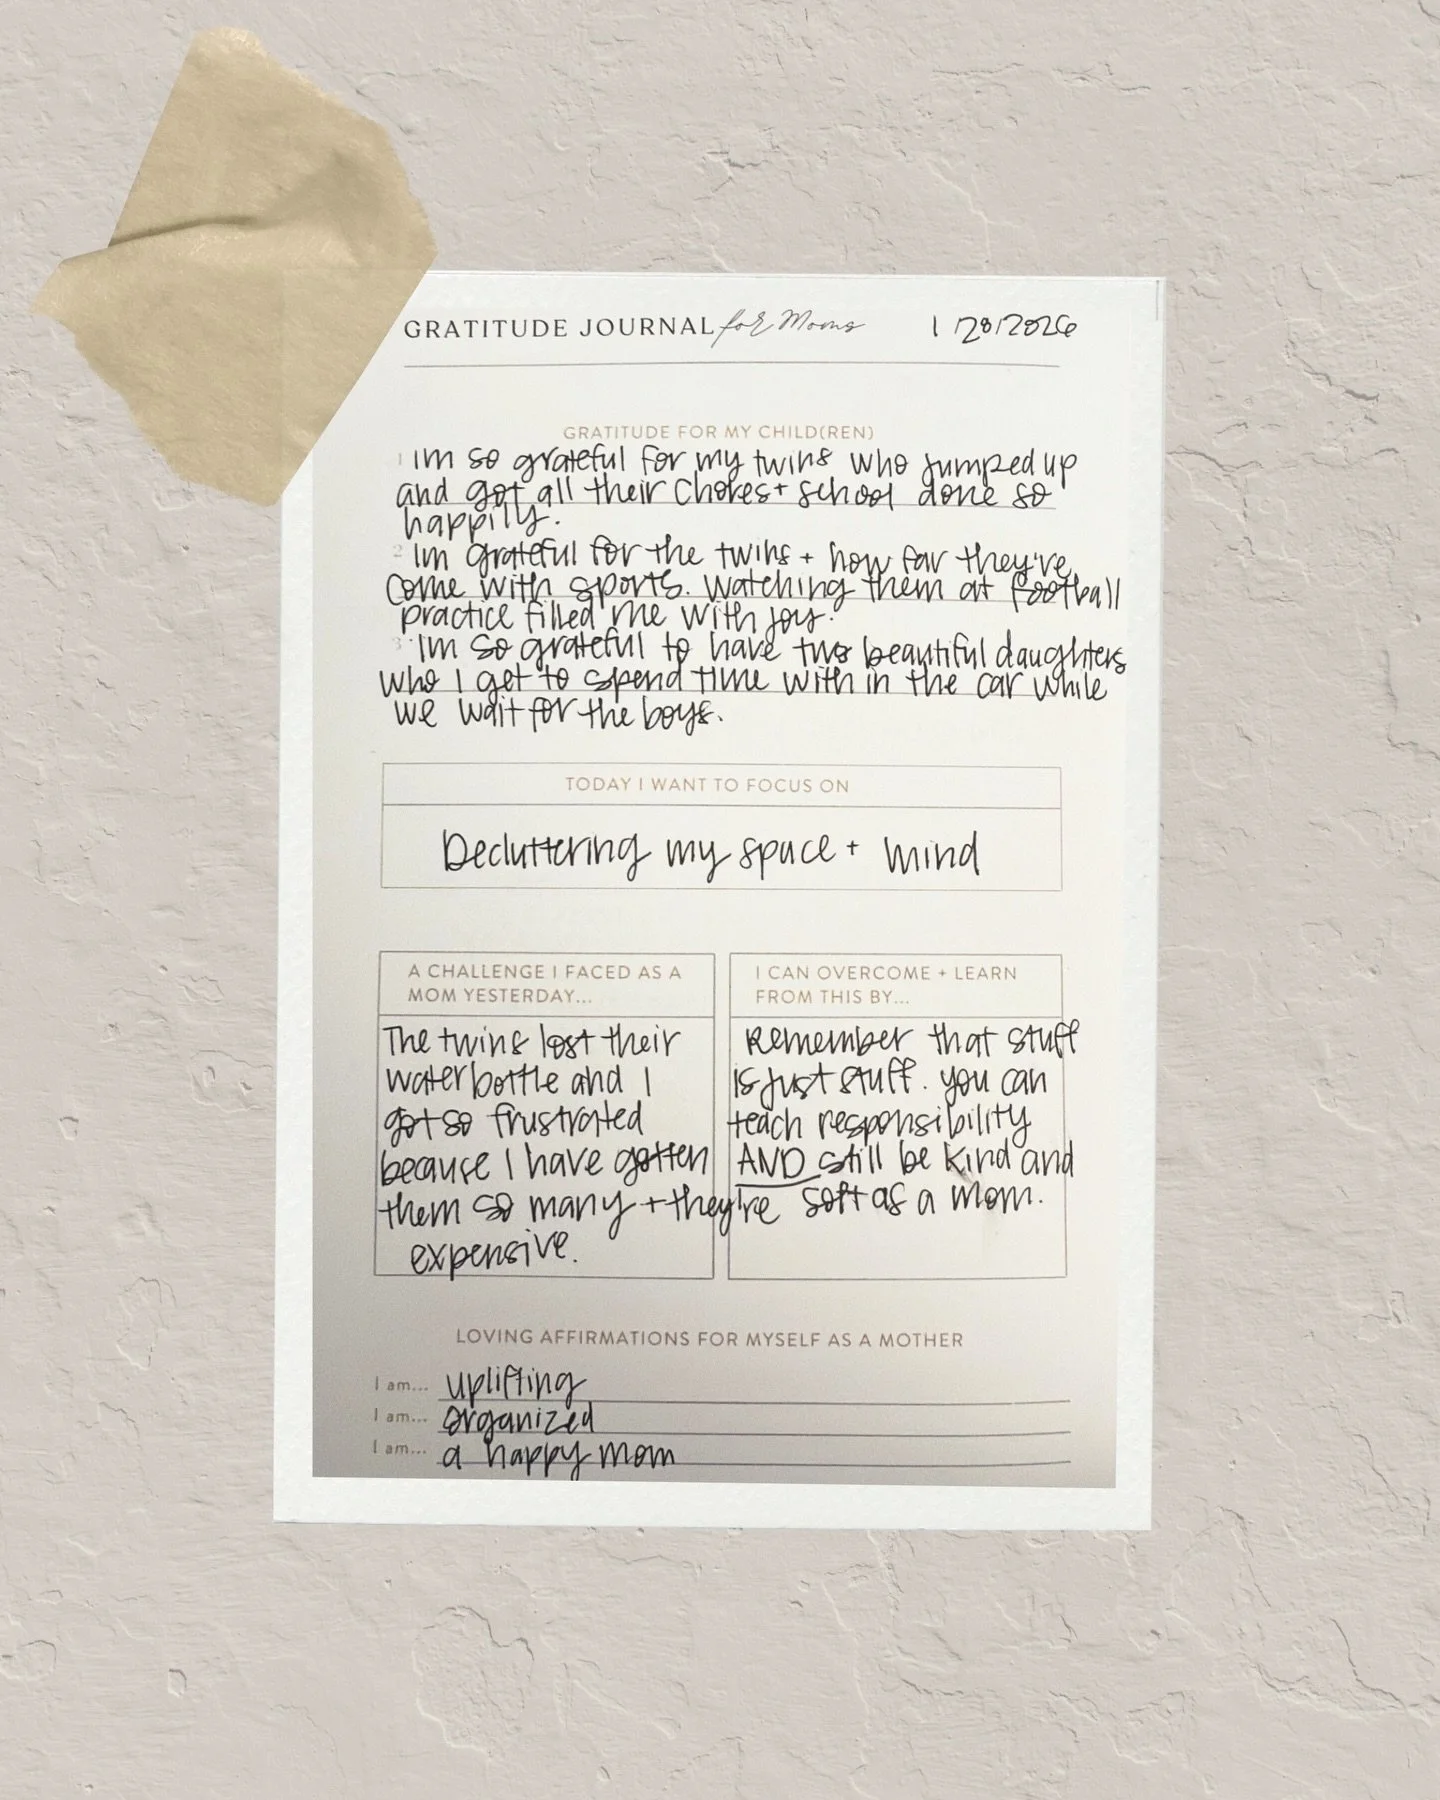 GRATITUDE JOURNAL for Moms 1/28/2026
GRATITUDE FOR MY CHILD(REN)
1 Im so grateful for my twins who jumped up
and got all their chores + school done so
happily.
2 Im grateful for the twins + how far they're
come with sports. Watching them at football
practice filled me with joy.
3 Im so grateful to have two beautiful daughters
who I get to spend time with in the car while
we wait for the boys.
TODAY I WANT TO FOCUS ON
Decluttering my space + mind
A CHALLENGE I FACED AS A
MOM YESTERDAY...
The twins lost their
water bottle and I
got so frustrated
because I have gotten
them so many + they're
expensive.
I CAN OVERCOME + LEARN
FROM THIS BY...
Remember that stuff
is just stuff. you can
teach responsibility
AND still be kind and
soft as a mom.
LOVING AFFIRMATIONS FOR MYSELF AS A MOTHER
I am... uplifting
I am... organized
I am... a happy mom